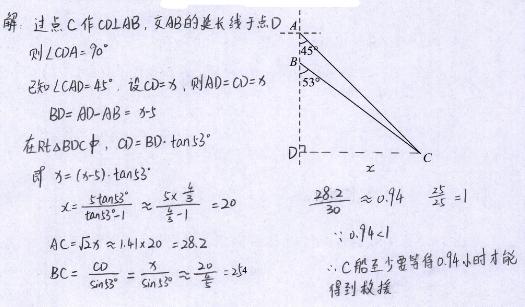 解: 过点C作CD⊥AB, 交AB的延长线于点D
则∠CDA=90°
已知∠CAD=45°, 设CD=x, 则AD=CD=x
BD=AD-AB=x-5
在Rt△BDC中, CD=BD·tan53°
即 x=(x-5)·tan53°
x=5tan53°/(tan53°-1)≈(5×4/3)/(4/3-1)=20
AC=√2x≈1.41×20=28.2
BC=CD/sin53°=x/sin53°≈20/(4/5)=25
A
45°
B
53°
D
C
x
28.2/30≈0.94 25/25=1
∵0.94<1
∴C船至少要等待0.94小时才能
得到救援